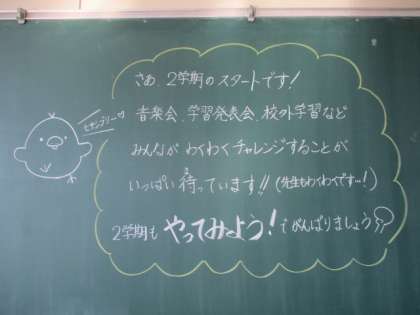 さあ、2学期のスタートです!
音楽会、学習発表会、校外学習など
みんなが わくわくチャレンジすることが
いっぱい待っています!!(先生もわくわくです…!)
2学期も やってみよう!でがんばりましょう